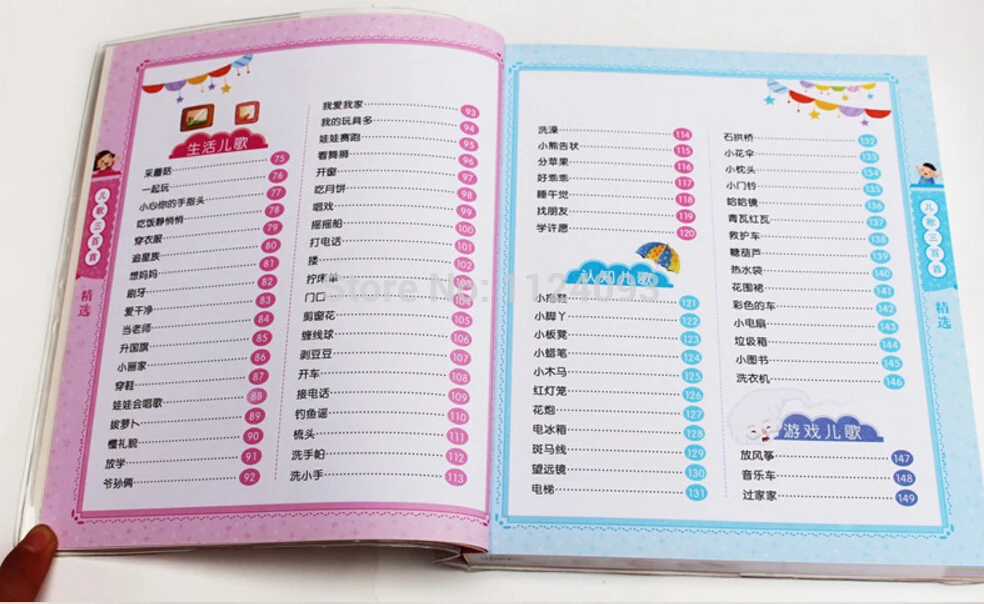 儿歌三百首
精选
生活儿歌
采蘑菇 75
一起玩 76
小心你的手指头 77
吃饭静悄悄 78
穿衣服 79
追星族 80
想妈妈 81
刷牙 82
爱干净 83
当老师 84
升国旗 85
小丽家 86
穿鞋 87
娃娃会唱歌 88
拔萝卜 89
懂礼貌 90
放学 91
爷孙俩 92
我爱我家 93
我的玩具多 94
娃娃赛跑 95
看舞狮 96
开窗 97
吃月饼 98
唱戏 99
摇摇船 100
打电话 101
搂 102
拧床 103
门口 104
剪窗花 105
缠线球 106
剥豆豆 107
开车 108
接电话 109
钓鱼谣 110
梳头 111
洗手帕 112
洗小手 113
洗澡 114
小熊告状 115
分苹果 116
好乖乖 117
睡午觉 118
找朋友 119
学许愿 120
认知儿歌
小拖鞋 121
小脚丫 122
小板凳 123
小蜡笔 124
小木马 125
红灯笼 126
花炮 127
电冰箱 128
斑马线 129
望远镜 130
电梯 131
石拱桥 132
小花伞 133
小枕头 134
小门铃 135
哈哈镜 136
青瓦红瓦 137
救护车 138
糖葫芦 139
热水袋 140
花围裙 141
彩色的车 142
小电扇 143
垃圾箱 144
小图书 145
洗衣机 146
游戏儿歌
放风筝 147
音乐车 148
过家家 149
儿歌三百首
精选
Store No: 1124093